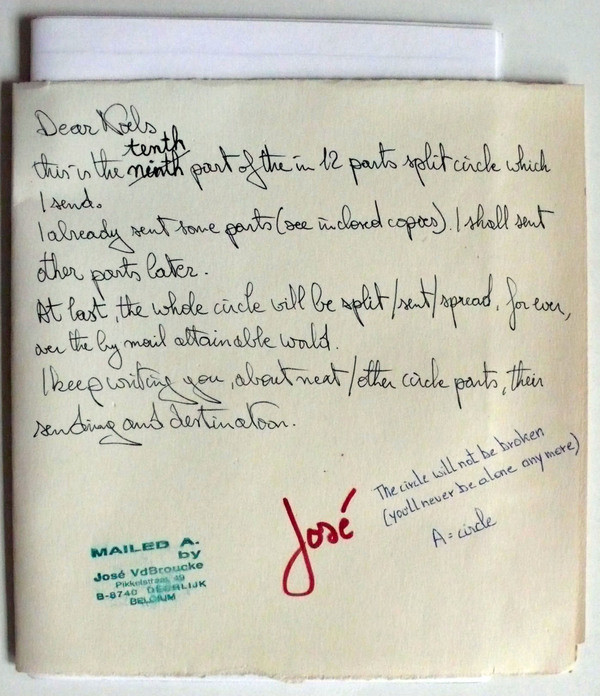 Dear Roels
tenth
this is the ninth part of the in 12 parts split circle which
I send.
I already sent some parts (see inclosed copies). I shall sent
other parts later.
At last, the whole circle will be split/sent/spread, for ever,
over the by mail attainable world.
I keep writing you, about next/other circle parts, their
sending and destination.
The circle will not be broken
(you'll never be alone any more)
A = circle
José
MAILED A.
by
José VdBroucke
Pikkelstraat 49
B-8740 DEERLIJK
BELGIUM